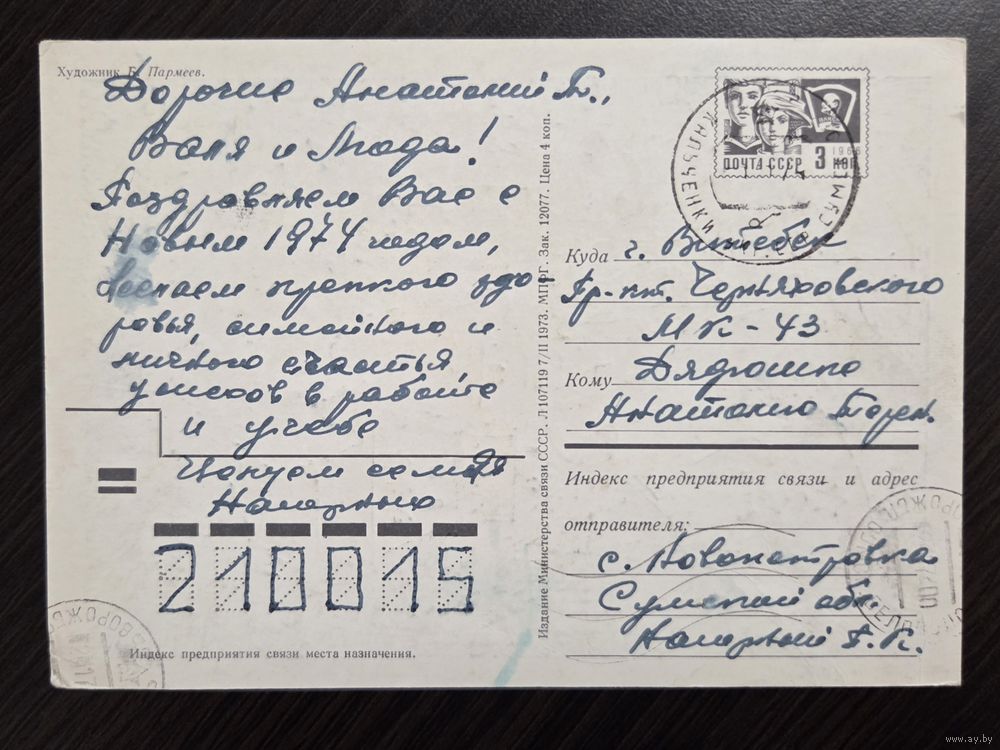 Художник Б. Пармеев.
Дорогие Анатолий Т.,
Валя и Люда!
Поздравляем Вас с
Новым 1974 годом,
желаем крепкого здо-
ровья, симейного и
личного счастья,
успехов в работе
и учебе
Целуем семья
Нагорных
210015
Индекс предприятия связи места назначения.
Издание Министерства связи СССР. Л 107119 7/II 1973. МПФГ. Зак. 12077. Цена 4 коп.
1966
ПОЧТА СССР 3 КОП
Куда г. Витебск
Пр-кт. Черняховского
МК-43
Кому Дядюшко
Анатолию
Индекс предприятия связи и адрес
отправителя:
с. Новопетровка
Сумской обл.
Нагорный
www.ay.by